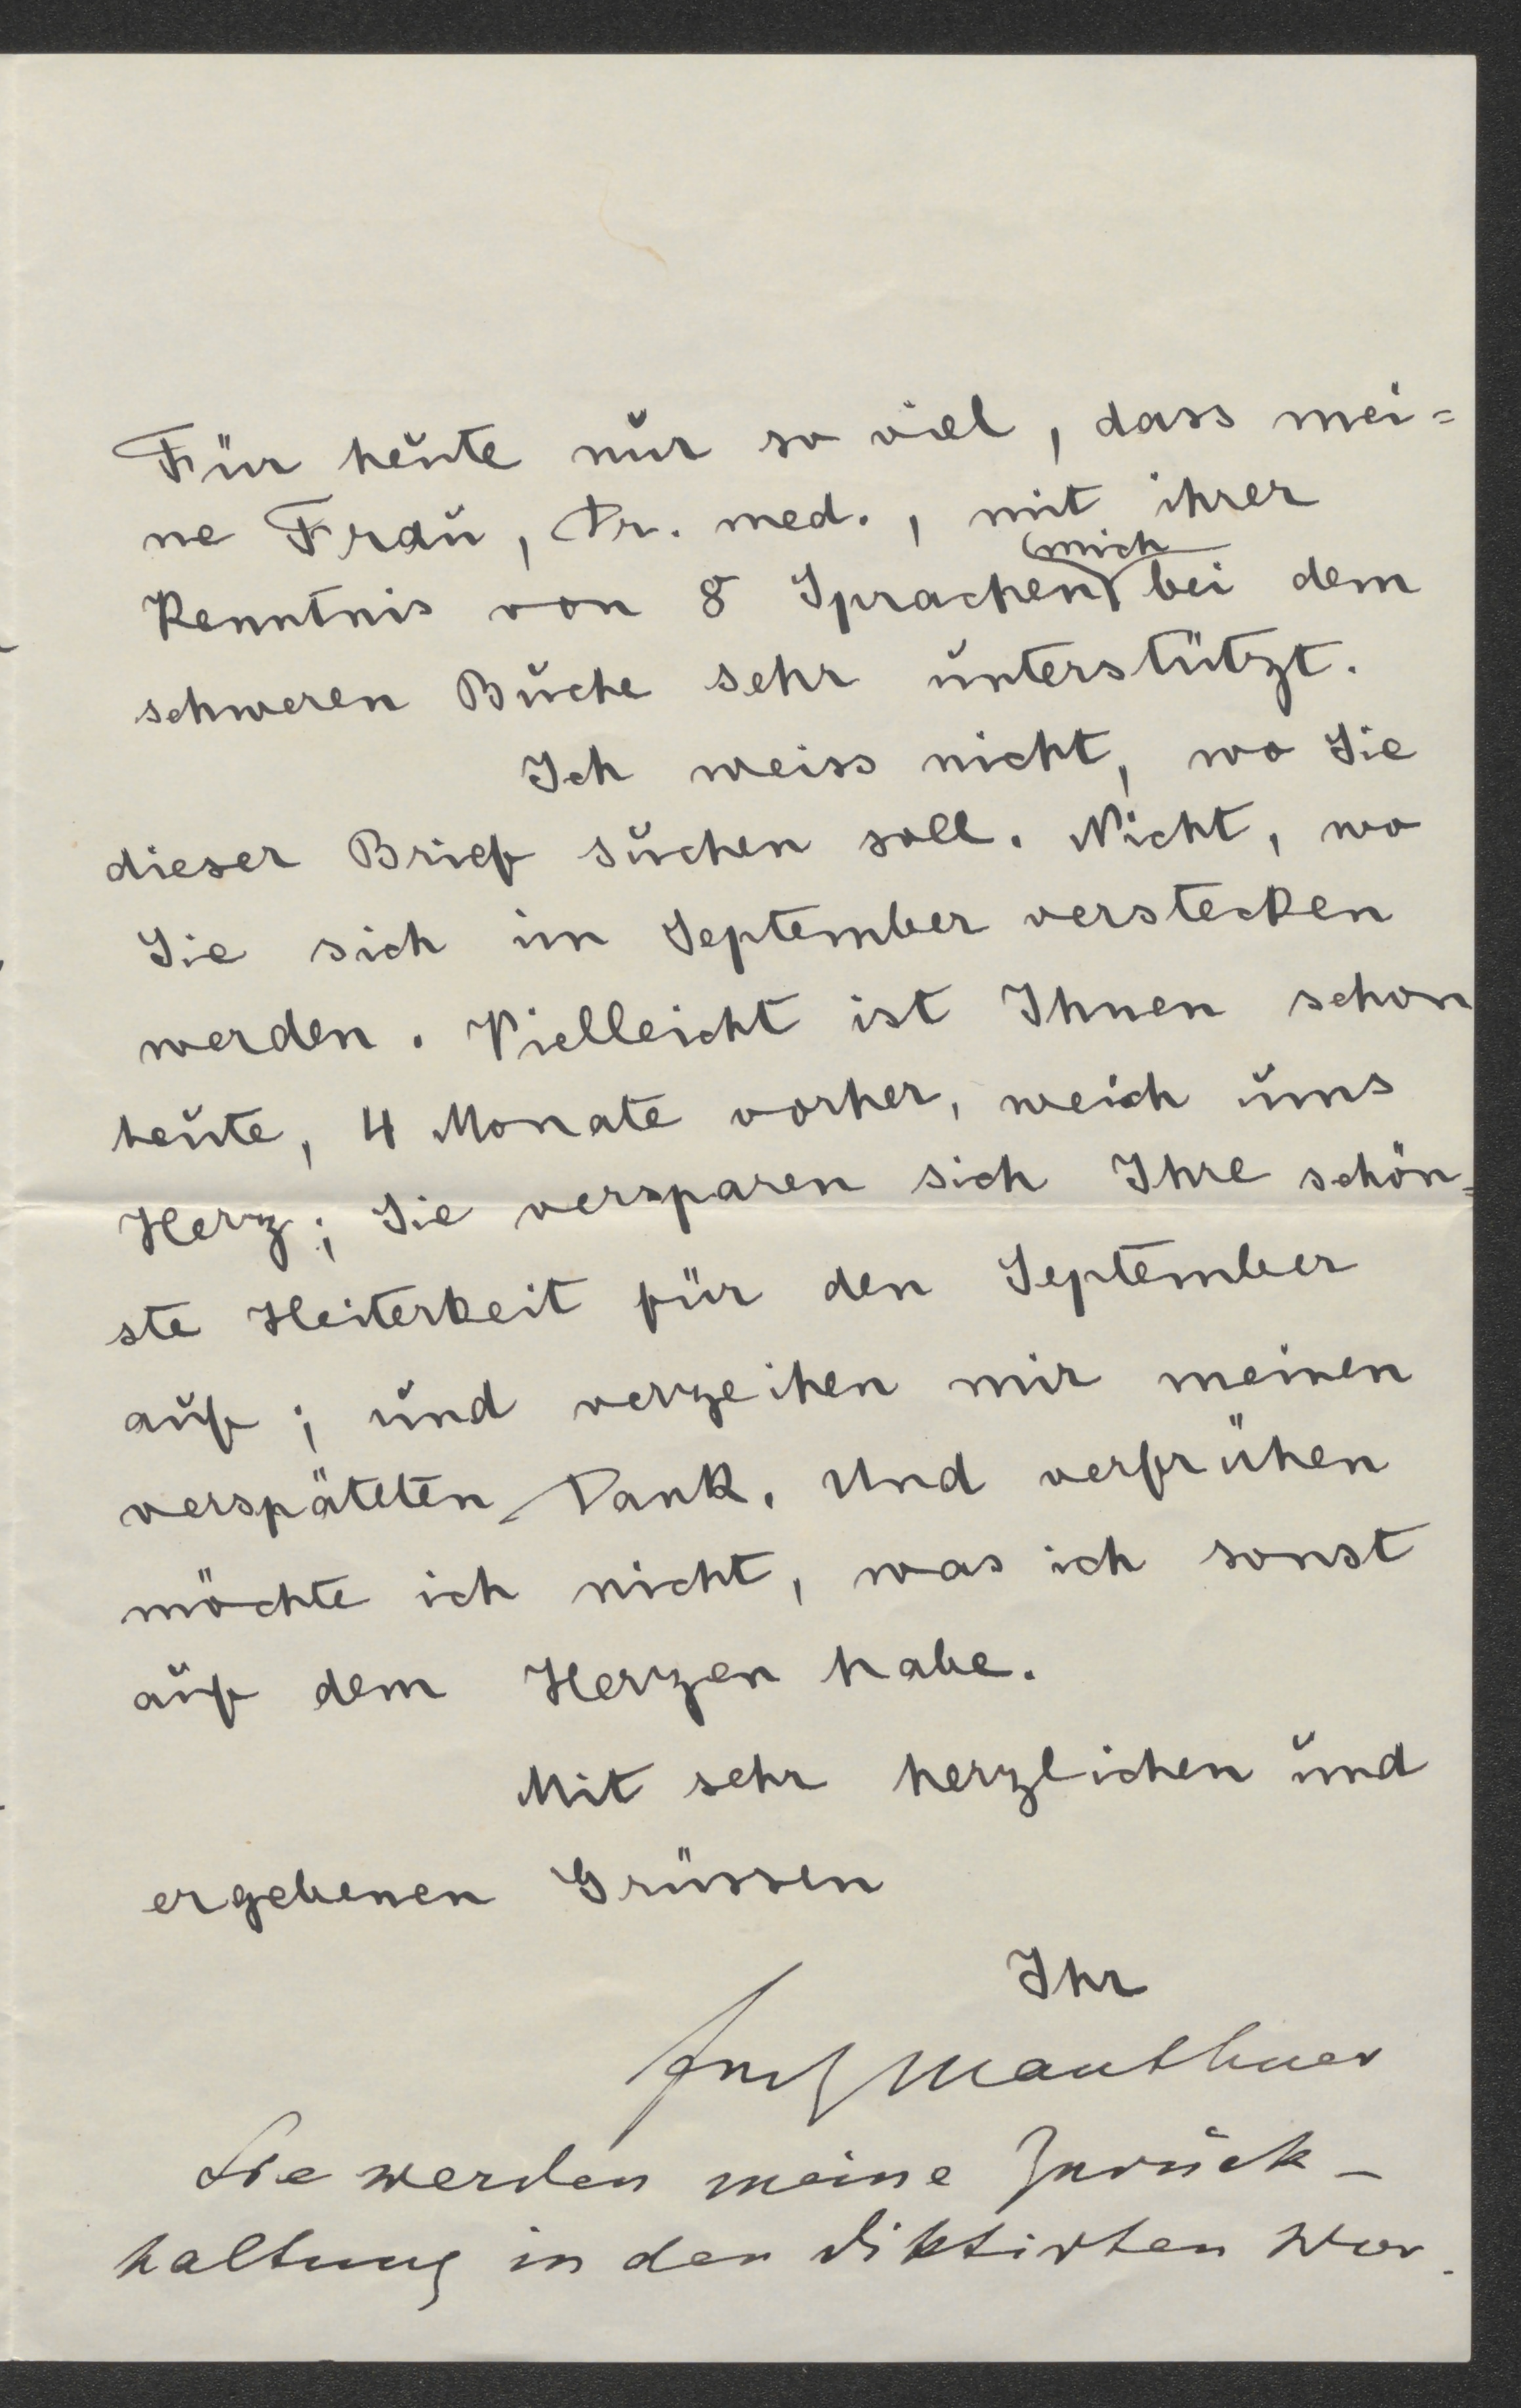 Für heute nur so viel, dass mei=
ne Frau, Dr. med., mit ihrer
Kenntnis von 8 Sprachen mich bei dem
schweren Buche sehr unterstützt.
Ich weiss nicht, wo Sie
dieser Brief suchen soll. Nicht, wo
Sie sich im September verstecken
werden. Vielleicht ist Ihnen schon
heute, 4 Monate vorher, weich ums
Herz; Sie versparen sich Ihre schön=
ste Heiterkeit für den September
auf; und verzeihen mir meinen
verspäteten Dank. Und verfrühen
möchte ich nicht, was ich sonst
auf dem Herzen habe.
Mit sehr herzlichen und
ergebenen Grüssen
Ihr
Fritz Mauthner
Sie werden meine Zurück-
haltung in den diktirten Wor-